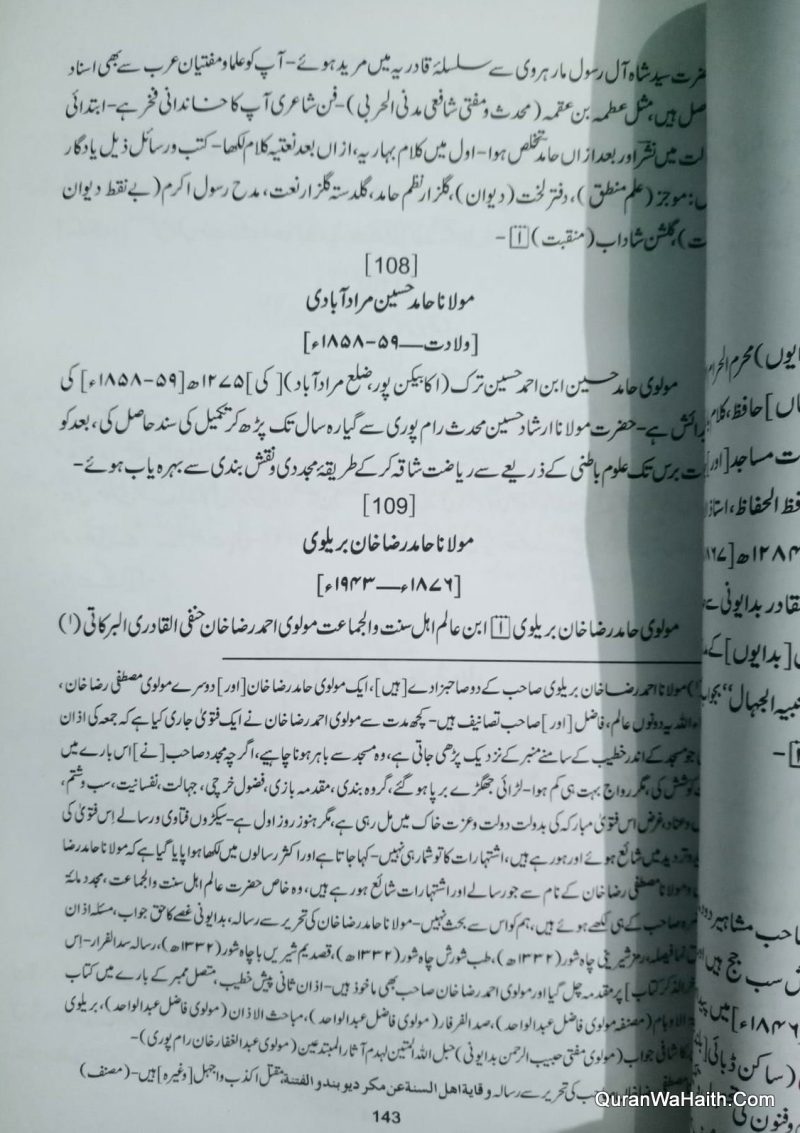 حضرت سید شاہ آل رسول مارہروی سے سلسلۂ قادریہ میں مرید ہوئے- آپ کو علما و مفتیان عرب سے بھی اسناد
حاصل ہیں، مثل عطمہ بن عقمہ (محدث و مفتی شافعی مدنی الحربی)- فن شاعری آپ کا خاندانی فخر ہے- ابتدائی
لت میں نشر اور بعد ازاں حامد تخلص ہوا- اول میں کلام بہاریہ، ازاں بعد نعتیہ کلام لکھا- کتب و رسائل ذیل یادگار
ں: موجز (علم منطق)، دفتر لخت (دیوان)، گلزار نظم حامد، گلدستہ گلزار نعت، مدح رسول اکرم (بے نقط دیوان
ت)، گلشن شاداب (منقبت) [آ]-
[108]
مولانا حامد حسین مرادآبادی
[ولادت—۵۹-۱۸۵۸ء]
مولوی حامد حسین ابن احمد حسین ترک (اکابیکن پور، ضلع مرادآباد) [کی] ۱۲۷۵ھ [۵۹-۱۸۵۸ء] کی
پیدائش ہے- حضرت مولانا ارشاد حسین محدث رام پوری سے گیارہ سال تک پڑھ کر تکمیل کی سند حاصل کی، بعد کو
ت برس تک علوم باطنی کے ذریعے سے ریاضت شاقہ کر کے طریقۂ مجددی و نقش بندی سے بہرہ یاب ہوئے-
[109]
مولانا حامد رضا خان بریلوی
[۱۸۷۶ء—۱۹۴۳ء]
مولوی حامد رضا خان بریلوی [آ] ابن عالم اہل سنت والجماعت مولوی احمد رضا خان حنفی القادری البرکاتی (۱)
(۱) مولانا احمد رضا خان بریلوی صاحب کے دو صاحبزادے [ہیں]، ایک مولوی حامد رضا خان [اور] دوسرے مولوی مصطفی رضا خان،
اللہ یہ دونوں عالم، فاضل [اور] صاحب تصانیف ہیں- کچھ مدت سے مولوی احمد رضا خان نے ایک فتویٰ جاری کیا ہے کہ جمعہ کی اذان
جو مسجد کے اندر خطیب کے سامنے منبر کے نزدیک پڑھی جاتی ہے، وہ مسجد سے باہر ہونا چاہیے، اگرچہ مجدد صاحب [نے] اس بارے میں
کوشش کی، مگر رواج بہت ہی کم ہوا- لڑائی جھگڑے برپا ہو گئے، گروہ بندی، مقدمہ بازی، فضول خرچی، جہالت، نفسانیت، سب و شتم،
وعناد، غرض اس فتویٰ مبارکہ کی بدولت دولت و عزت خاک میں مل رہی ہے، مگر ہنوز روز اول ہے- سیکڑوں فتاوی و رسالے اِس فتویٰ کی
تردید میں شائع ہوئے اور ہو رہے ہیں، اشتہارات کا تو شمار ہی نہیں- کہا جاتا ہے اور اکثر رسالوں میں لکھا ہوا پایا گیا ہے کہ مولانا حامد رضا
و مولانا مصطفی رضا خان کے نام سے جو رسالے اور اشتہارات شائع ہو رہے ہیں، وہ خاص حضرت عالم اہل سنت والجماعت، مجدد مائۃ
صاحب کے ہی لکھے ہوئے ہیں، ہم کو اس سے بحث نہیں- مولانا حامد رضا خان کی تحریر سے رسالہ، بدایونی غصے کا حق جواب، مسئلہ اذان
فیصلہ، رمز شیرینی چاہ شور (۱۳۳۲ھ)، طب شورش چاہ شور (۱۳۳۲ھ)، قصدیم شیریں با چاہ شور (۱۳۳۲ھ)، رسالہ سد الفرار- اِس
الذکر کتاب] پر مقدمہ چل گیا اور مولوی احمد رضا خان صاحب بھی ماخوذ ہیں- اذان ثانی پیش خطیب، متصل ممبر کے بارے میں کتاب
الاوہام (مصنفہ مولوی فاضل عبدالواحد)، صد الفرفار (مولوی فاضل عبدالواحد)، مباحث الاذان (مولوی فاضل عبدالواحد)، بریلوی
کا شافی جواب (مولوی مفتی حبیب الرحمن بدایونی) حبل اللہ المتین لہدم آثار المبتدعین (مولوی عبدالغفار خان رام پوری)-
مصطفی کی تحریر سے رسالہ وقایۃ اھل السنۃ عن مکر دیوبند و الفتنۃ، مقتل اکذب و اجہل [وغیرہ] ہیں- (مصنف)
143
ایوں) محرم الحرام
حافظ، کلام
ت مساجد [اور]
فظ الحفاظ، استاذ
۱۲۸۴ھ
لقادر بدایونی سے
[بدایوں] کے
نبیہ الجہال"
صاحب مشاہیر
سب جج ہیں
۱۸۴۶ء] میں
(ساکن ڈبائی
و فنون کی
QuranWaHaith.Com